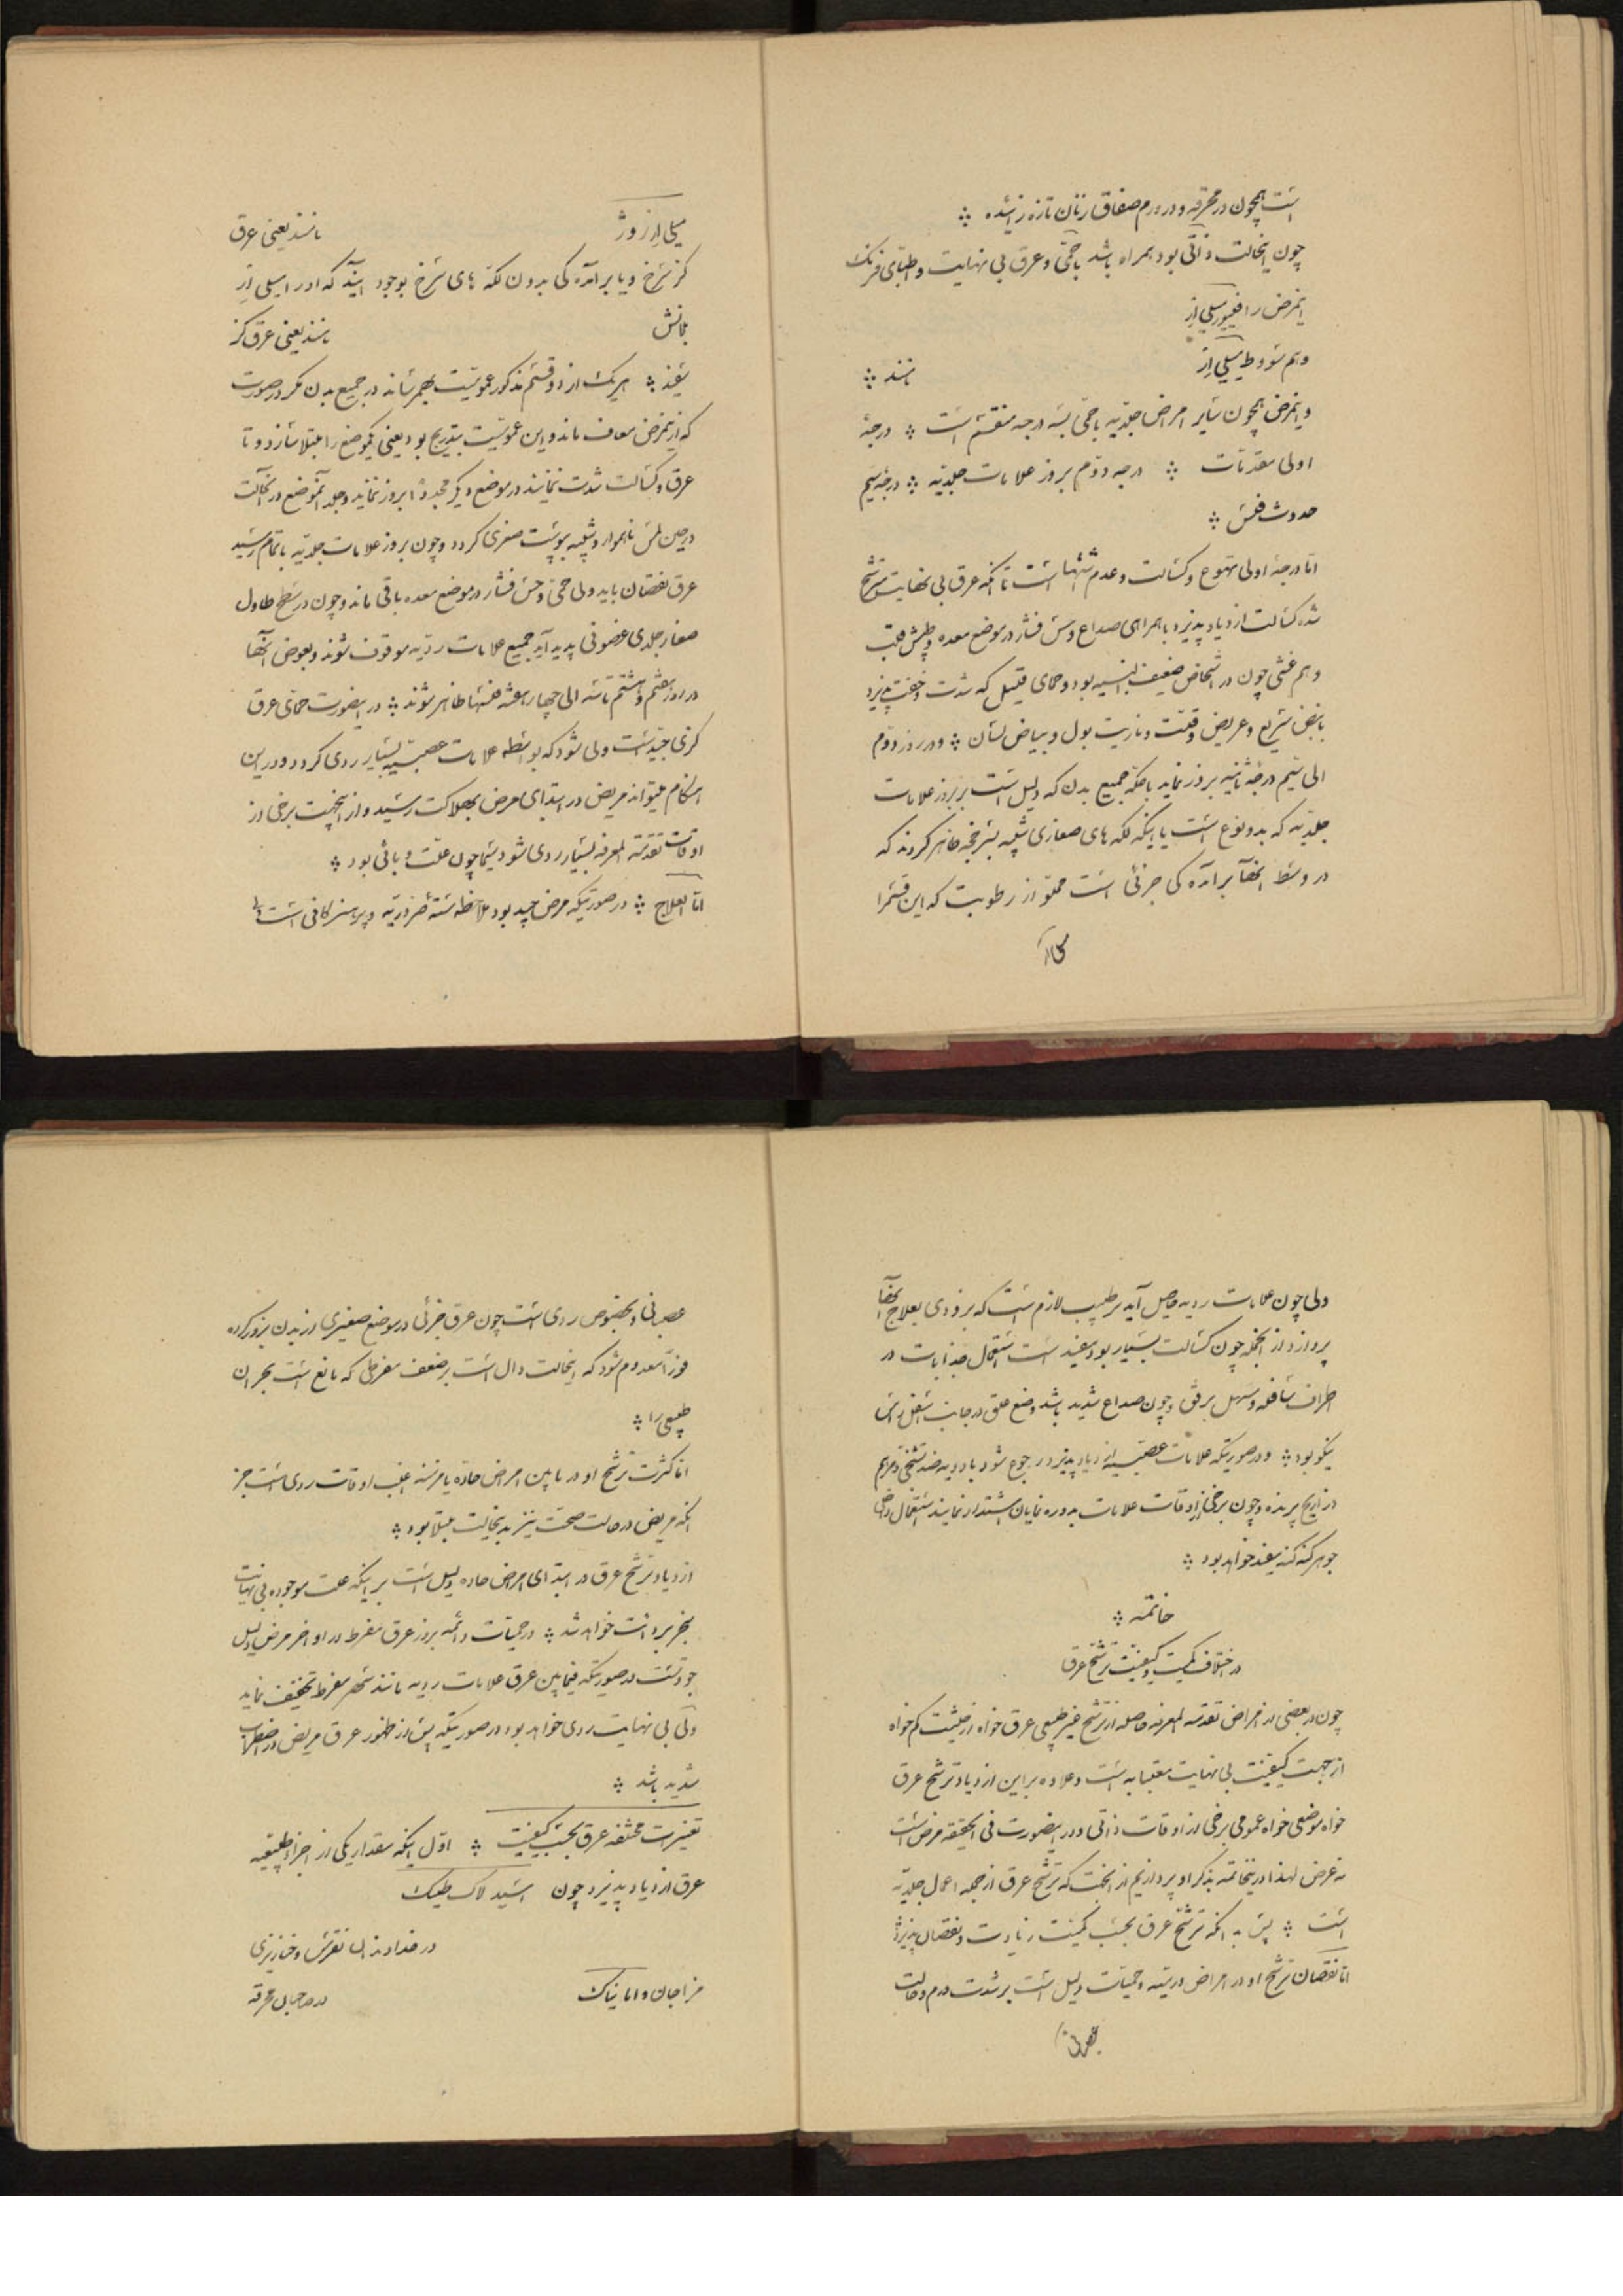 است همچون در محرقه و در ورم صفاق زنان تازه زائیده ؞
چون اینحالت ذاتی بود همراه باشد با حمّی و عرق بی نهایت و اطبّای فرنک
اینمرض را فیبور میلی ار
و هم سُووط میلی ار نامند ؞
و اینمرض همچون سایر امراض جلدیّه با حمّی بسه درجه منقسم است ؞ درجهٔ
اولی مقدّمات ؞ درجه دوّم بروز علامات جلدیّه ؞ درجهٔ سیم
حدوث فلس ؞
امّا درجهٔ اولی تهوع و کسالت و عدم اشتها است تا آنکه عرق بی نهایت مترشّح
شده کسالت ازدیاد پذیرد با همراهی صداع و حس فشار در موضع معده و طپش قلب
و هم غشی چون در اشخاص ضعیف البنیه بود و حمای قلیل که شدت و خفّت پذیرد
با نبض سریع و عریض و قلّت و ناریت بول و بیاض لسان ؞ و در روز دوّم
الی سیّم درجهٔ ثانیه بروز نماید با حکّه جمیع بدن که دلیل است بر بروز علامات
جلدیّه که بدو نوع است یا اینکه لکّه های صغاری شبیه بسرخجه ظاهر کردند که
در وسط آنها برآمده کی جزئی است مملوّ از رطوبت که این قسمرا
میلی ار روژ نامند یعنی عرق
کز سُرخ و یا برآمده کی بدون لکّه های سُرخ بوجود آیند که او را میلی ار
بلانش نامند یعنی عرق کز
سفید ؞ هریک از دو قسم مذکور عمومیّت بهمرساند در جمیع بدن مکر در صورت
که از تمرض معاف ماند و این عمومیّت بتدریج بود یعنی یکموضع را مبتلا سازد و تا
عرق و کسالت شدت نمایند در موضع دیکر مجدداً بروز نماید و جلد آنموضع در آنحالت
در حین لمس ناهموار و شبیه بپوست صغری کردد و چون بروز علامات جلدیّه باتمام رسید
عرق نقصان یابد ولی حمّی و حس فشار در موضع معده باقی ماند و چون در سطح طاول
صغار جلدی غضونی پدید آید جمیع علامات ردیّه موقوف شوند و بعوض آنها
در روز هفتم و هشتم تا سه الی چهار هفته فلسها ظاهر شوند ؞ در اینصورت حمّای عرق
کزی جیّد است ولی شود که بواسطه علامات عصبیّه بسیار ردی کردد و در این
هنکام میتواند مریض در ابتدای مرض بهلاکت رسید و از اینجهت برخی از
اوقات تقدمة المعرفه بسیار ردی شود سیّما چون علّت وبائی بود ؞
امّا العلاج ؞ در صورتیکه مرض جید بود ملاحظه ستّه ضروریّه و پرهیز کافی است
ولی چون علامات ردیه حاصل آید بر طبیب لازم است که بزودی بعلاج آنها
پردازد از آنجمله چون کسالت بسیار بود مفید است استعمال جذابات در
اطراف سافله و مسهل برفق و چون صداع شدید باشد وضع علق در جانب اسفل راس
نیکو بود ؞ و در صورتیکه علامات عصبیّه ازدیاد پذیرد رجوع شود بادویه ضد تشنّج و مراهم
ذراریح پرنده و چون برخی از اوقات علامات بدوره نمایان اشتداد نمایند استعمال داخلی
جوهر کنه کنه مفید خواهد بود ؞
خاتمه ؞
در اختلاف کمیّت و کیفیّت ترشّح عرق
چون در بعضی از امراض تقدمة المعرفه حاصله از ترشّح غیر طبیعی عرق خواه از حیثیت کم خواه
از جهت کیفیّت بی نهایت معتنابه است و علاوه بر این ازدیاد ترشّح عرق
خواه موضعی خواه عمومی برخی از اوقات ذاتی و در اینصورت فی الحقیقه مرض است
نه عرض لهذا در خاتمه بذکر او پردازیم از آنجهت که ترشّح عرق از جمله اعمال جلدیّه
است ؞ پس بدانکه ترشّح عرق بحسب کمیّت زیادت و نقصان پذیرد
امّا نقصان ترشّح او در امراض ورمیّه و حمیّات دلیل است بر شدت ورم و حالت
عصبانی و بخصوص ردی است چون عرق جزئی در موضع صغیری از بدن بروز کرده
فوراً معدوم شود که اینحالت دال است بر ضعف مفرطی که مانع است بحران
طبیعی را ؞
امّا کثرت ترشّح او در مابین امراض حادّه یا مزمنه اغلب اوقات ردی است جز
آنکه مریض در حالت صحّت نیز بدینحالت مبتلا بود ؞
ازدیاد ترشّح عرق در ابتدای امراض حاده دلیل است بر اینکه علت موجوده بی نهایت
منجر برداءت خواهد شد ؞ در حمیّات دائمه بروز عرق مفرط در اواخر مرض دلیل
جودتست در صورتیکه فیمابین عرق علامات ردیه مانند سهر مفرط تخفیف نماید
ولی بی نهایت ردی خواهد بود در صورتیکه پس از ظهور عرق مریض در اضطراب
شدید باشد ؞
تغییرات مختلفه عرق بحسب کیفیّت ؞ اوّل اینکه مقدار یکی از اجزاء طبیعیه
عرق ازدیاد پذیرد چون اسید لاک طیک
در خداوندان نقرس و خنازیری
مزاجان و امانیاک در صاحبان محرقه